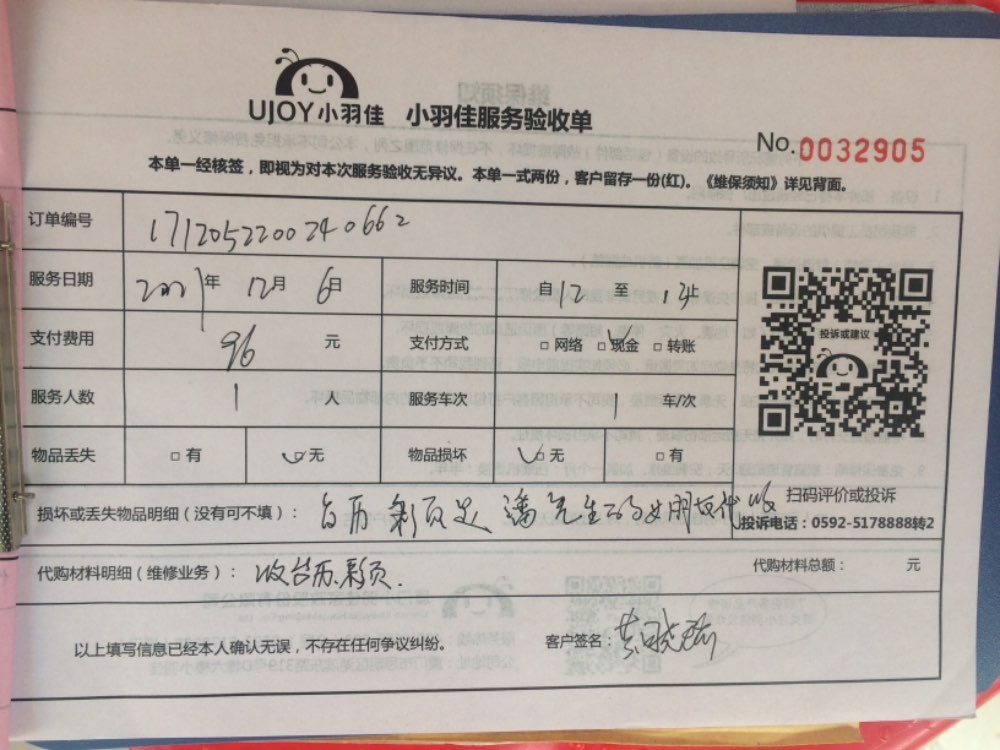 UJOY小羽佳 小羽佳服务验收单
No.0032905
本单一经核签，即视为对本次服务验收无异议。本单一式两份，客户留存一份(红)。《维保须知》详见背面。
订单编号 171205220024 0662
服务日期 年 12月 6日 服务时间 自12 至 13止
支付费用 96 元 支付方式 □网络 □现金 □转账
投诉或建议
服务人数 1 人 服务车次 1 车/次
物品丢失 □有 □无 物品损坏 □无 □有
扫码评价或投诉
损坏或丢失物品明细（没有可不填）： 台历 彩页 是 潘先生 女朋友代收
投诉电话：0592-5178888转2
代购材料明细（维修业务）： 收台历.彩页. 代购材料总额： 元
以上填写信息已经本人确认无误，不存在任何争议纠纷。 客户签名：